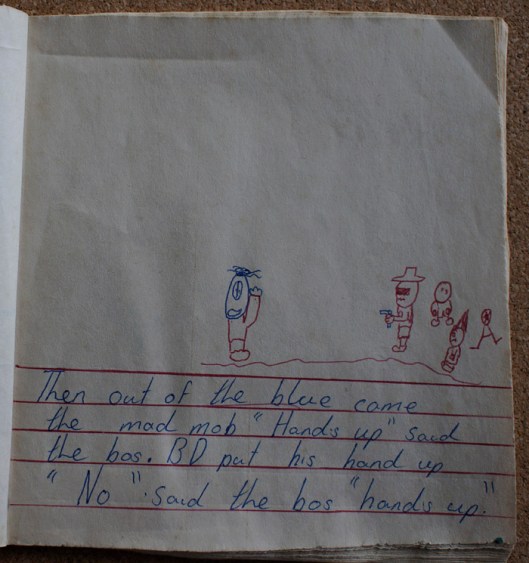 Then out of the blue came
the mad mob "Hands up" said
the bos. BD put his hand up
"No". said the bos "hands up."